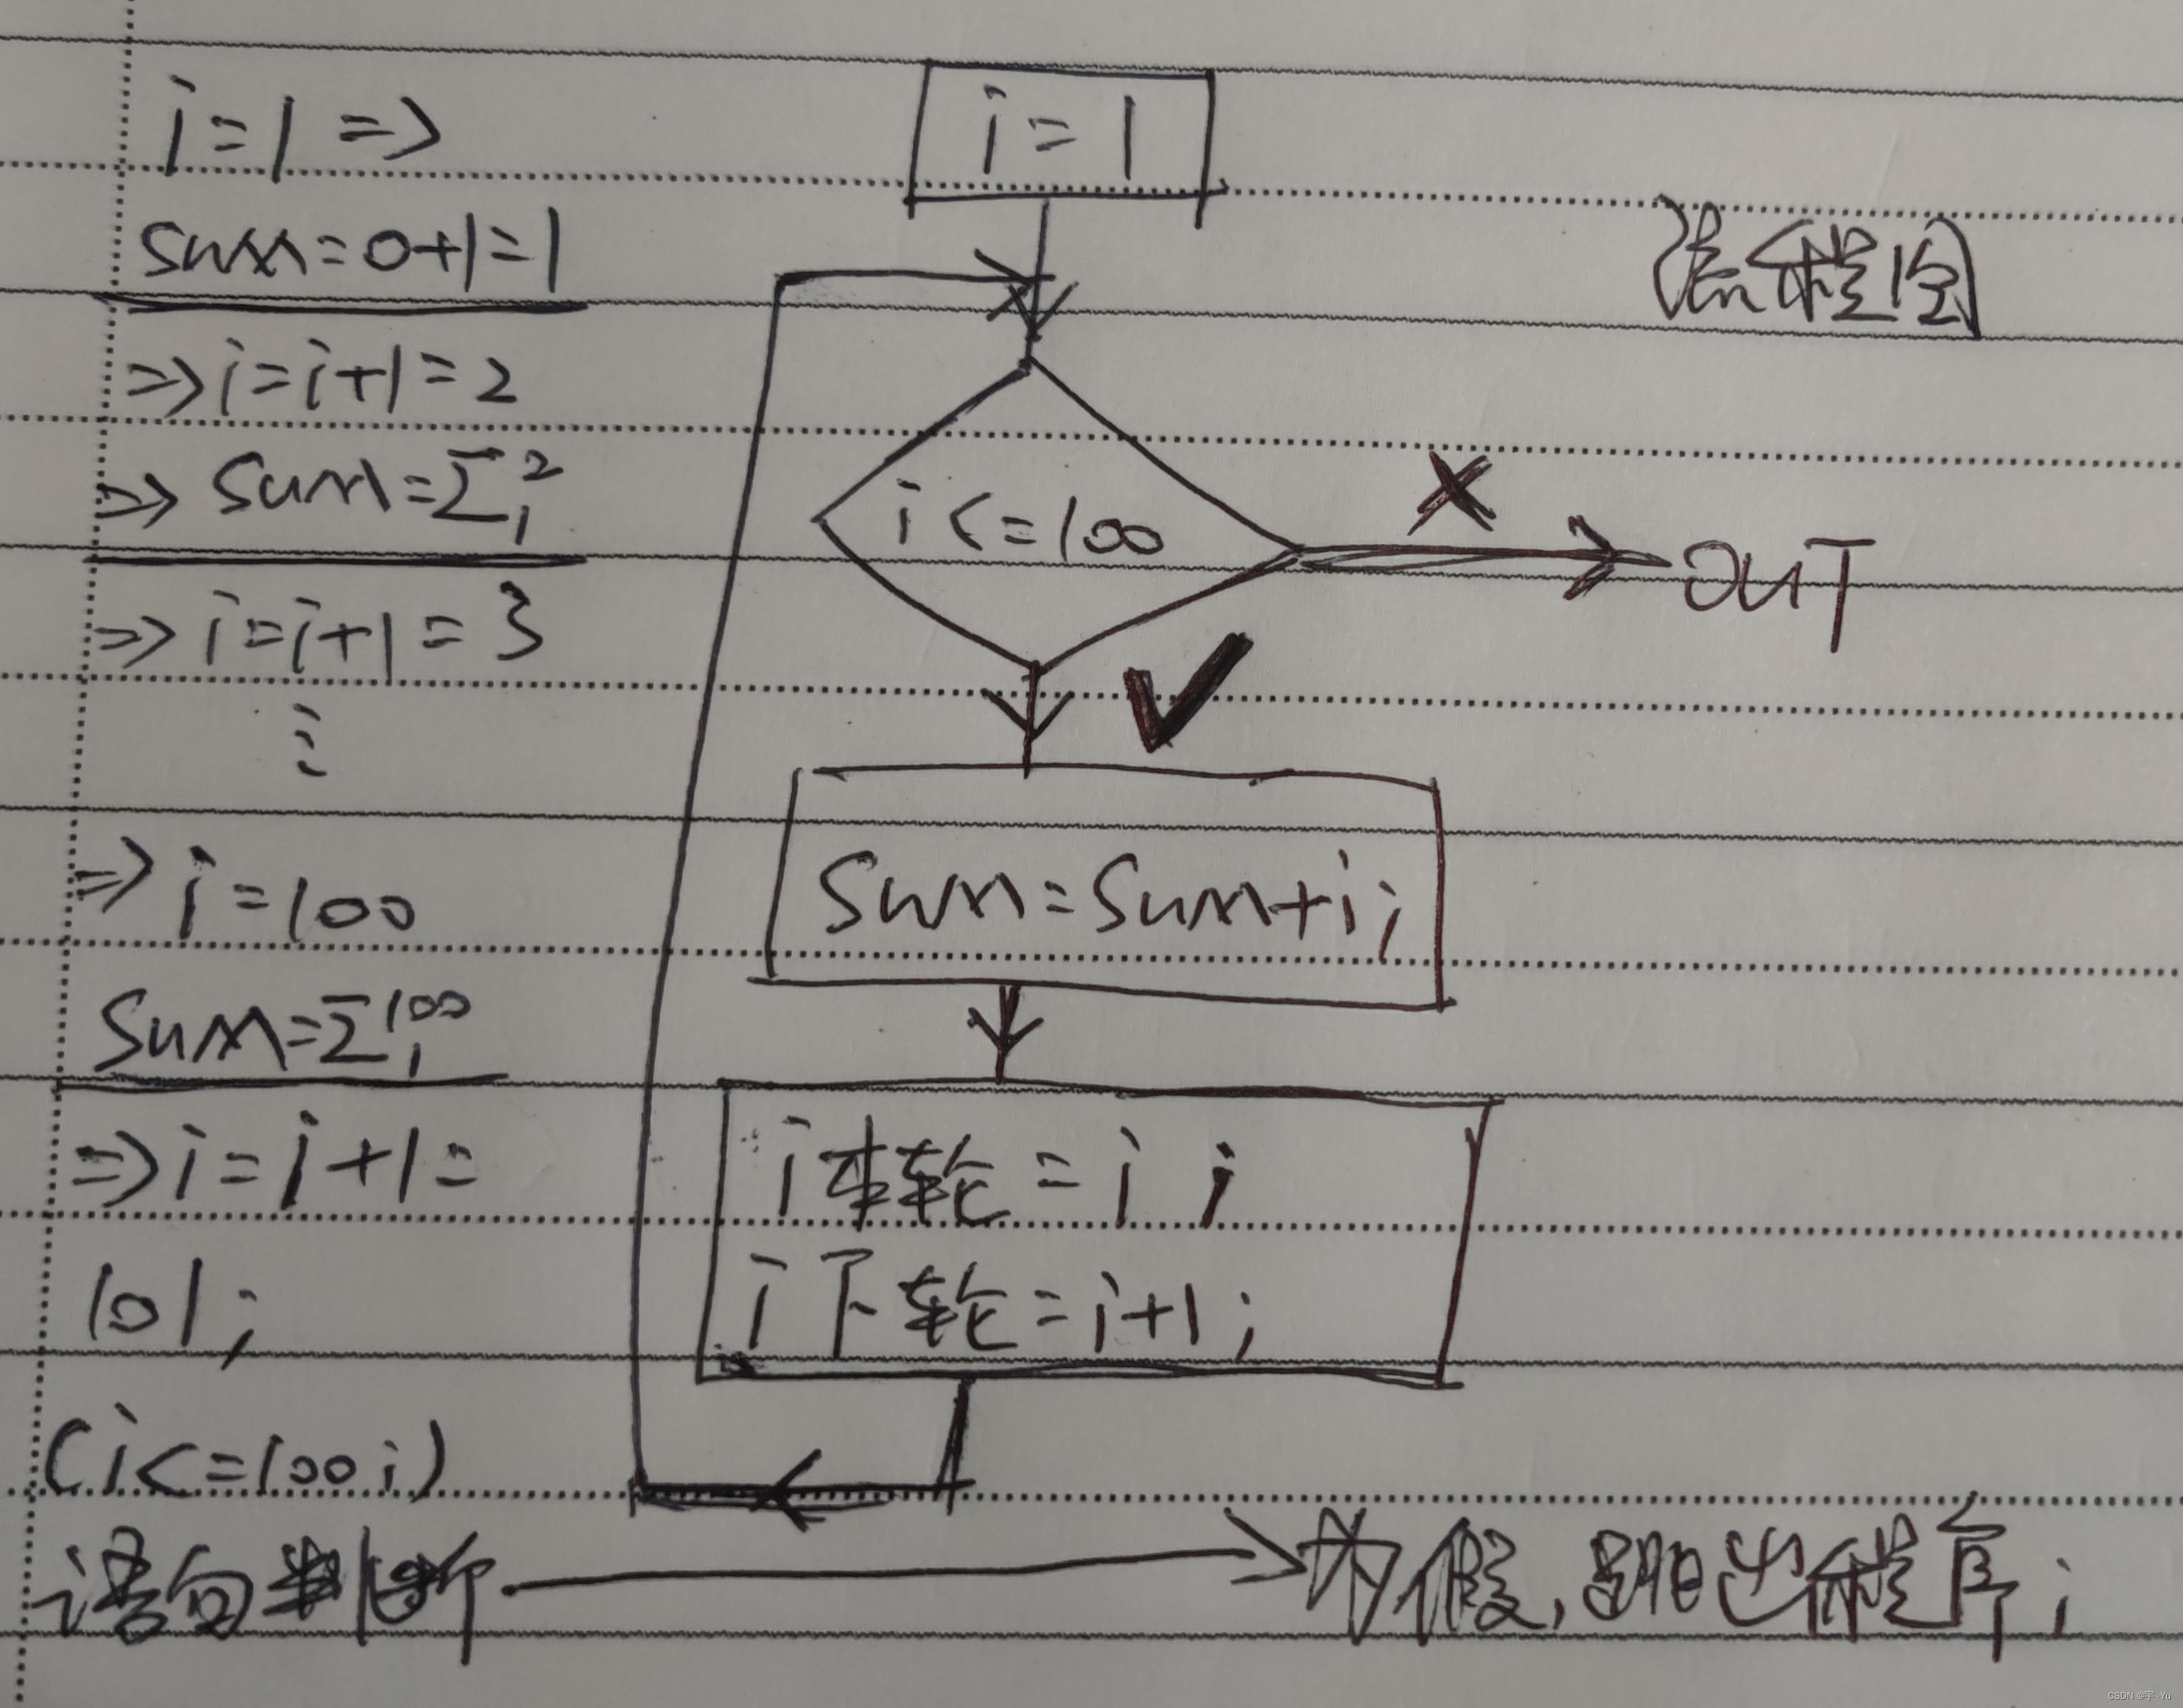 i=1 =>
sum=0+1=1
=> i=i+1=2
=> sum=Σ₁²
=> i=i+1=3
⋮
=> i=100
sum=Σ₁¹⁰⁰
=> i=i+1=
101;
(i<=100;)
语句判断 → 为假,跳出程序;
流程图
i=1
i<=100
× OUT
✓
sum=sum+i;
i本轮=i;
i下轮=i+1;
CSDN @宇-Yu